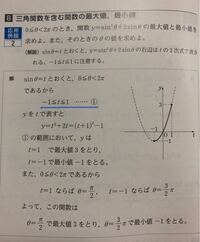 B 三角関数を含む関数の最大値，最小値
応用例題 2
0≦θ<2π のとき，関数 y=sin²θ+2sinθ の最大値と最小値を求めよ。また，そのときのθの値を求めよ。
(解説) sinθ=t とおくと，y=sin²θ+2sinθ の右辺は t の2次式で表される。-1≦t≦1 に注意する。
解 sinθ=t とおくと，0≦θ<2π
であるから
-1≦t≦1 ……①
y を t で表すと
y=t²+2t=(t+1)²-1
①の範囲において，y は
t=1 で最大値3をとり，
t=-1 で最小値-1をとる。
また，0≦θ<2π であるから
t=1 ならば θ=π/2， t=-1 ならば θ=3/2π
よって，この関数は
θ=π/2 で最大値3をとり，θ=3/2π で最小値-1をとる。
y
3
-1
O
1
t
-1